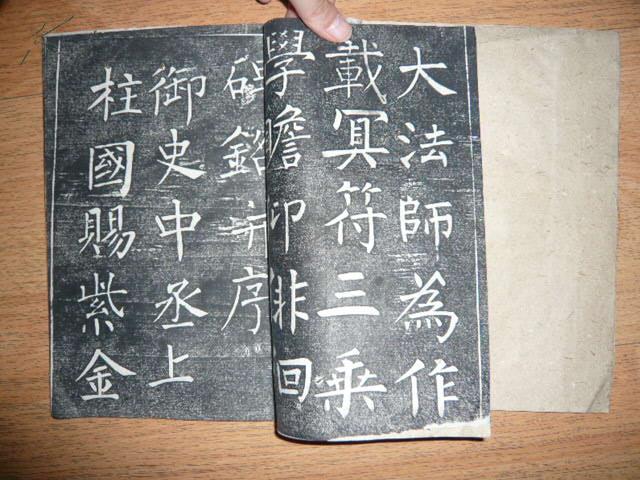 大法師為作
載冥符三乗
學瞻
碑銘并序
御史中丞上
柱國賜紫金